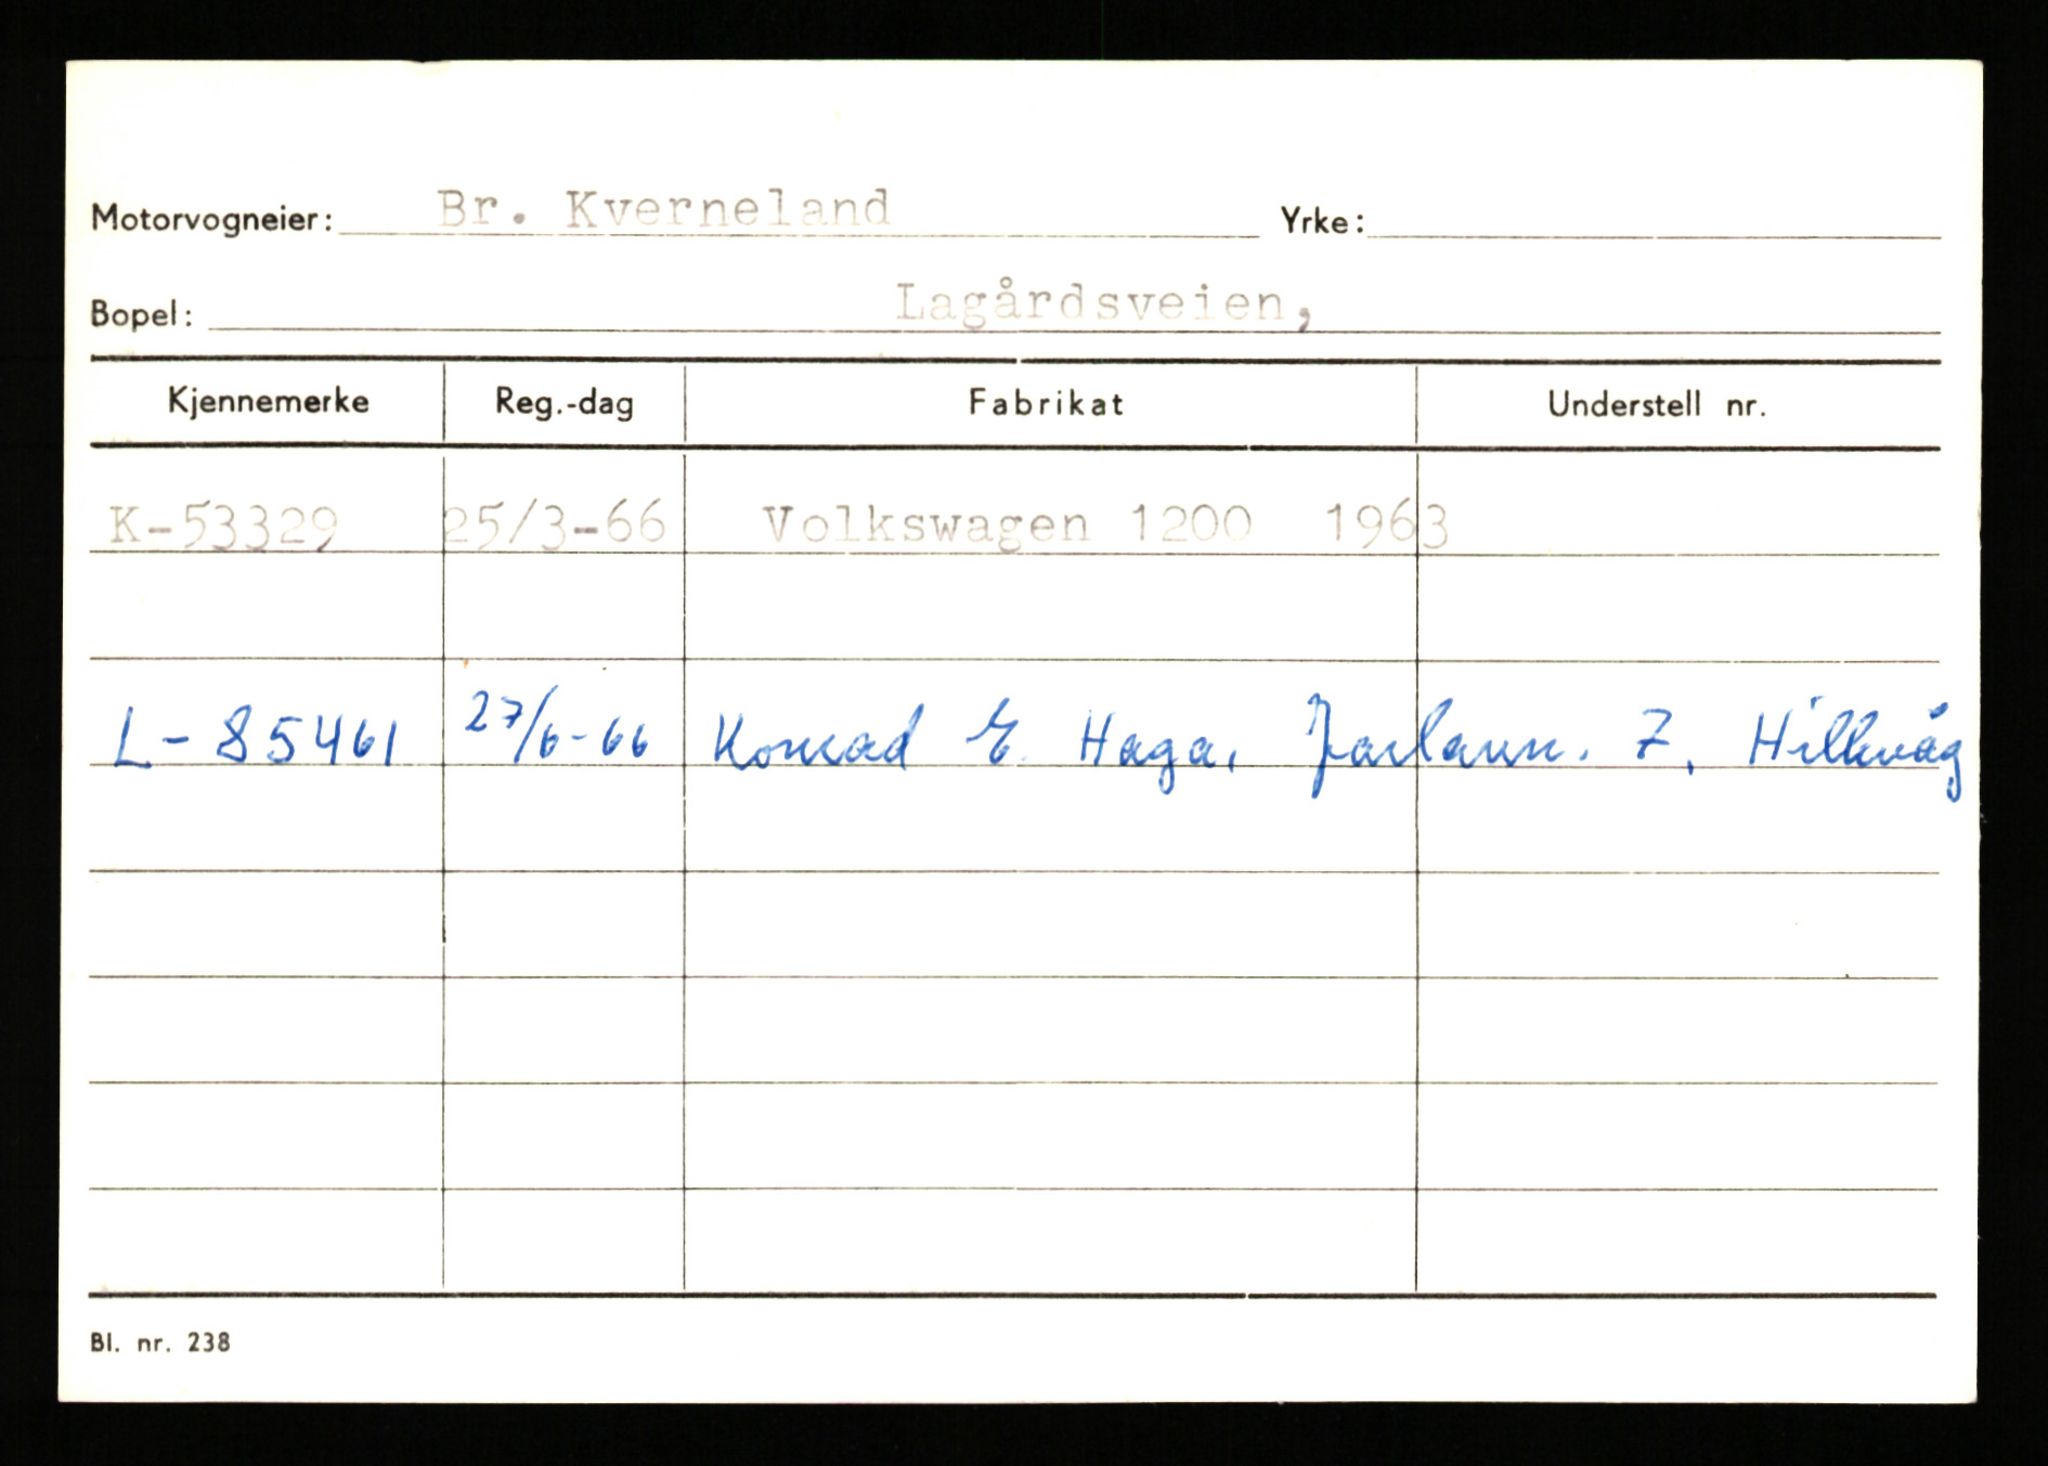 Motorvogneier: Br. Kverneland Yrke:
Bopel: Lagårdsveien,
Kjennemerke Reg.-dag Fabrikat Understell nr.
K-53329 25/3-66 Volkswagen 1200 1963
L-85461 27/6-66 Konrad E. Haga, 7, Hillevåg
Bl. nr. 238